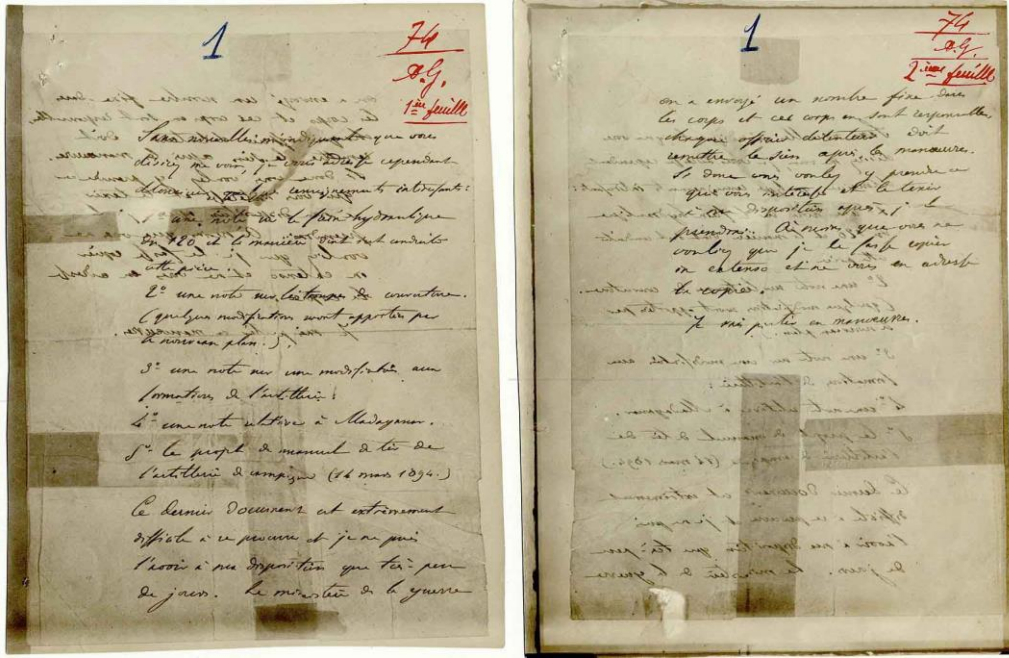 1
74
A.G.
1ère feuille
Sans nouvelles m'indiquant que vous
désirez me voir, je vous adresse cependant
Monsieur quelques renseignements intéressants:
1º une note sur le frein hydraulique
du 120 et la manière dont s'est conduite
cette pièce.
2º une note sur les troupes de couverture.
(quelques modifications seront apportées par
le nouveau plan.).
3º une note sur une modification aux
formations de l'artillerie:
4º une note relative à Madagascar.
5º le projet de manuel de tir de
l'artillerie de campagne (14 mars 1894.)
Ce dernier document est extrêmement
difficile à se procurer et je ne puis
l'avoir à ma disposition que très peu
de jours. Le ministère de la guerre
1
74
A.G.
2ième feuille
en a envoyé un nombre fixe dans
les corps et ces corps en sont responsables,
chaque officier détenteur doit
remettre le sien après les manœuvres.
Si donc vous voulez y prendre ce
qui vous intéresse et le tenir
à ma disposition après, je le
prendrai. A moins que vous ne
vouliez que je le fasse copier
in extenso et ne vous en adresse
la copie.
Je vais partir en manœuvres.